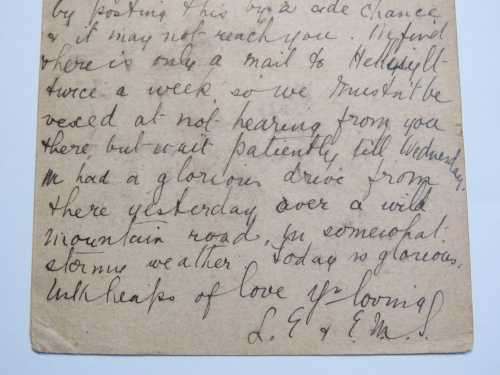 by posting this by a side chance
& it may not reach you. We find
there is only a mail to
twice a week so we mustn't be
vexed at not hearing from you
there but wait patiently till Wednesday.
We had a glorious drive from
there yesterday over a wild
mountain road, in somewhat
stormy weather. Today is glorious.
With heaps of love yr loving
L. E & E. M. S.